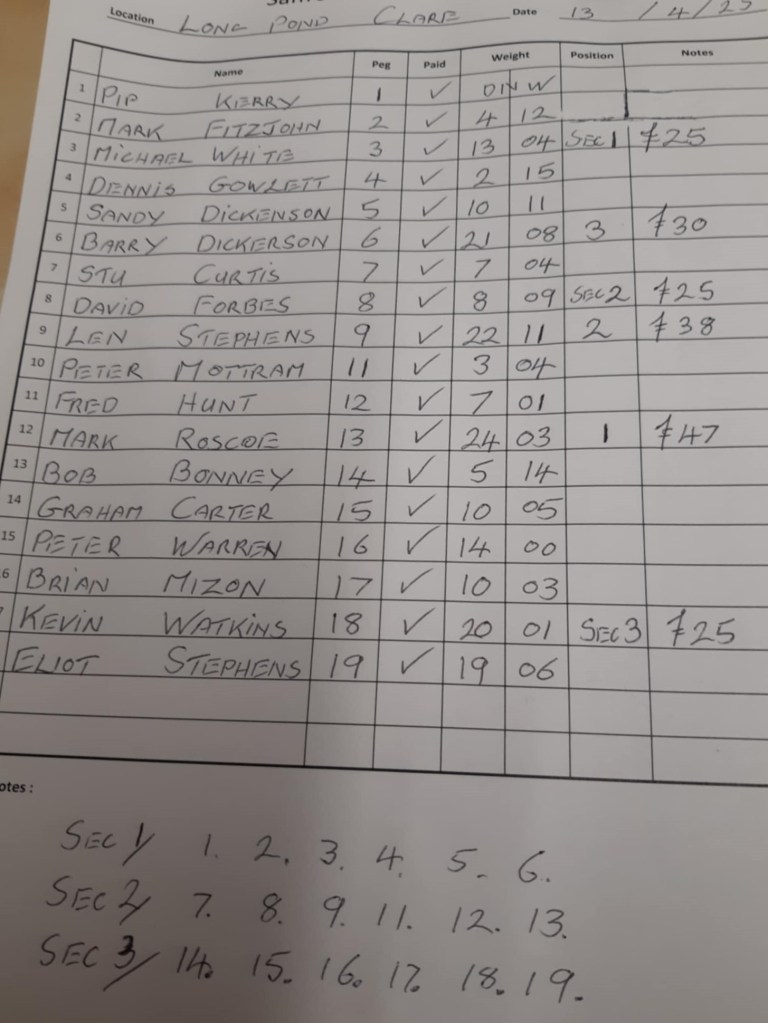 Location LONG POND CLARE Date 13 / 4 / 25
Name Peg Paid Weight Position Notes
1 PIP KERRY 1 ✓ DNW
2 MARK FITZJOHN 2 ✓ 4 12
3 MICHAEL WHITE 3 ✓ 13 04 SEC 1 £25
4 DENNIS GOWLETT 4 ✓ 2 15
5 SANDY DICKENSON 5 ✓ 10 11
6 BARRY DICKERSON 6 ✓ 21 08 3 £30
7 STU CURTIS 7 ✓ 7 04
8 DAVID FORBES 8 ✓ 8 09 SEC 2 £25
9 LEN STEPHENS 9 ✓ 22 11 2 £38
10 PETER MOTTRAM 11 ✓ 3 04
11 FRED HUNT 12 ✓ 7 01
12 MARK ROSCOE 13 ✓ 24 03 1 £47
13 BOB BONNEY 14 ✓ 5 14
14 GRAHAM CARTER 15 ✓ 10 05
15 PETER WARREN 16 ✓ 14 00
6 BRIAN MIZON 17 ✓ 10 03
KEVIN WATKINS 18 ✓ 20 01 SEC 3 £25
ELIOT STEPHENS 19 ✓ 19 06
otes :
SEC 1/ 1. 2. 3. 4. 5. 6.
SEC 2/ 7. 8. 9. 11. 12. 13.
SEC 3/ 14. 15. 16. 17. 18. 19.